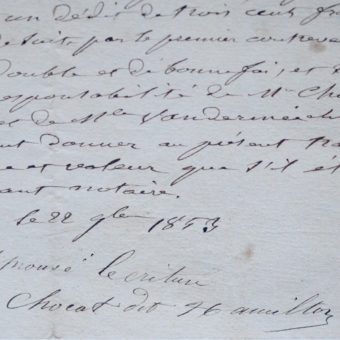 un dédit de trois cent fr
par le premier contreve
double et de bonne foi, et
responsabilité de Mr Ch
et de Mlle Vandermeich
donner au présent tra
et valeur que s'il ét
ant notaire.
le 22 9bre 1853
prouvé lecriture
Chocat dit Hamilton